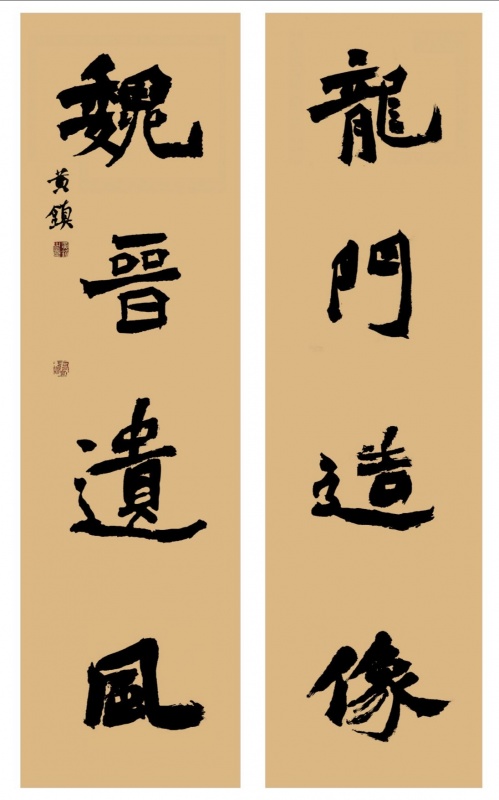 龍門造像
魏晉遺風
黃鎮